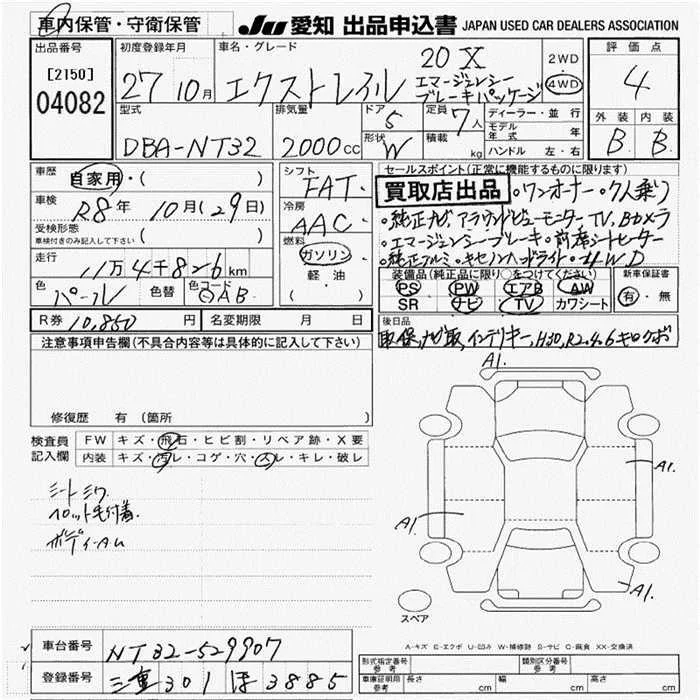 車内保管・守衛保管
JU 愛知 出品申込書 JAPAN USED CAR DEALERS ASSOCIATION
出品番号
[2150]
04082
初度登録年月
27 10月
車名・グレード
エクストレイル
20 X
エマージェンシー
ブレーキパッケージ
2WD
4WD
評価点
4
外装 内装
B B
型式
DBA-NT32
排気量
2000 cc
ドア
5
形状
W
定員
7人
積載
kg
ディーラー・並行
モデル年式 年
ハンドル 左・右
車歴
自家用・( )
車検
R8年 10月(29日)
受検形態
車検付きのみ記入して下さい ( )
走行
11万4千826km
色
パール
色替
色コード
QAB
シフト
FAT
冷房
AAC
燃料
ガソリン
軽油
( )
セールスポイント(正常に機能するものに限ります)
買取店出品 ・ワンオーナー・7人乗り
・純正ナビ, アラウンドビューモニター TV, Bカメラ
・エマージェンシーブレーキ・前席シートヒーター
・純正アルミ・キセノンヘッドライト・4WD
装備品(純正品に限り○をつけてください)
PS PW エアB AW
SR ナビ TV カワシート
新車保証書
有・無
R券 10,850 円
名変期限 月 日
後日品
取保, ナビ取, インテリキー, H30, R2.4.6キロクボ
注意事項申告欄(不具合内容等は具体的に記入して下さい)
修復歴 有(箇所
検査員
記入欄
FW キズ・飛石・ヒビ割・リペア跡・X要
内装 キズ・汚レ・コゲ・穴・スレ・キレ・破レ
シートシワ
ペット毛付着
ボディーAU
A1.
A1.
A1.
A1.
スペア
A-キズ E-エクボ U-凹み W-補修跡 S-サビ C-腐食 XX-交換済
車台番号 NT32-529907
登録番号 三重 301 ほ 3885
形式指定番号
参考
類別区分番号
参考
車庫証明用
参考
長さ cm
幅 cm
高さ cm